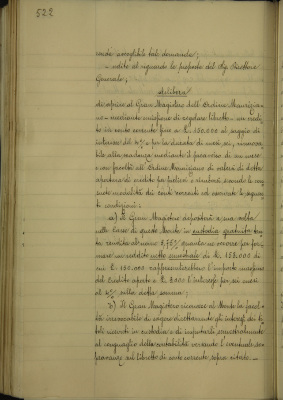 522
accogliere tali domande;
- udite al riguardo le proposte del Sig. Direttore
Generale;
delibera
di aprire al Gran Magistero dell'Ordine Maurizia-
no - mediante emissione di regolare libretto - un credi-
to in conto corrente fino a L. 150.000 al saggio di
interesse del 4% per la durata di mesi sei, rinnova-
bile alla scadenza mediante il preavviso di un mese
- con facoltà all'Ordine Mauriziano di valersi di detta
apertura di credito
modalità dei conti correnti ed osservate le seguen-
ti condizioni:
a) Il Gran Magistero depositerà a sua volta
nelle Casse di questo Monte in custodia gratuita tan-
ta rendita al 3,75% quanta ne occorre per for-
mare un reddito netto annuale di L. 153.000 di
cui L. 150.000 rappresenterebbero l'importo massimo
del credito aperto e L. 3000 l'interesse per sei mesi
al 4% sulla detta somma;
b) Il Gran Magistero riconosce al Monte la facol-
tà irrevocabile di esigere direttamente gli interessi dei ti-
toli ricevuti in custodia e di imputarli
al conguaglio della contabilità versando l'eventuale
sul libretto di conto corrente sopra citato. -